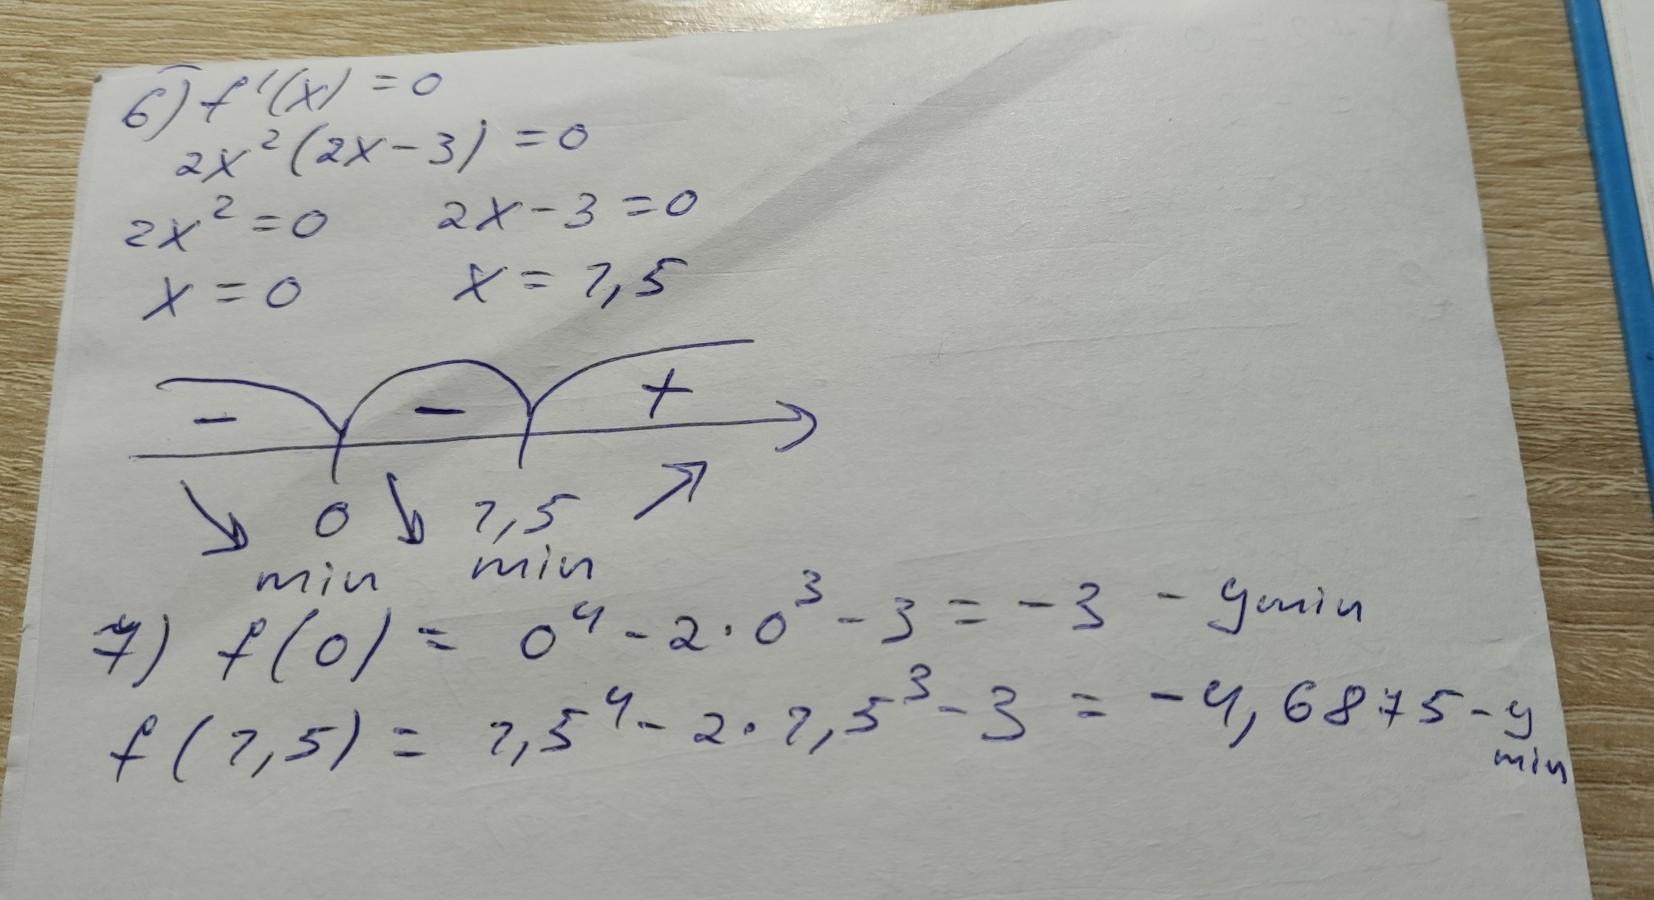 6) f'(x) = 0
2x²(2x-3) = 0
2x² = 0 2x-3 = 0
x = 0 x = 1,5
- - +
0 1,5
min min
7) f(0) = 0⁴ - 2·0³ - 3 = -3 - ymin
f(1,5) = 1,5⁴ - 2·1,5³ - 3 = -4,6875 - y
min